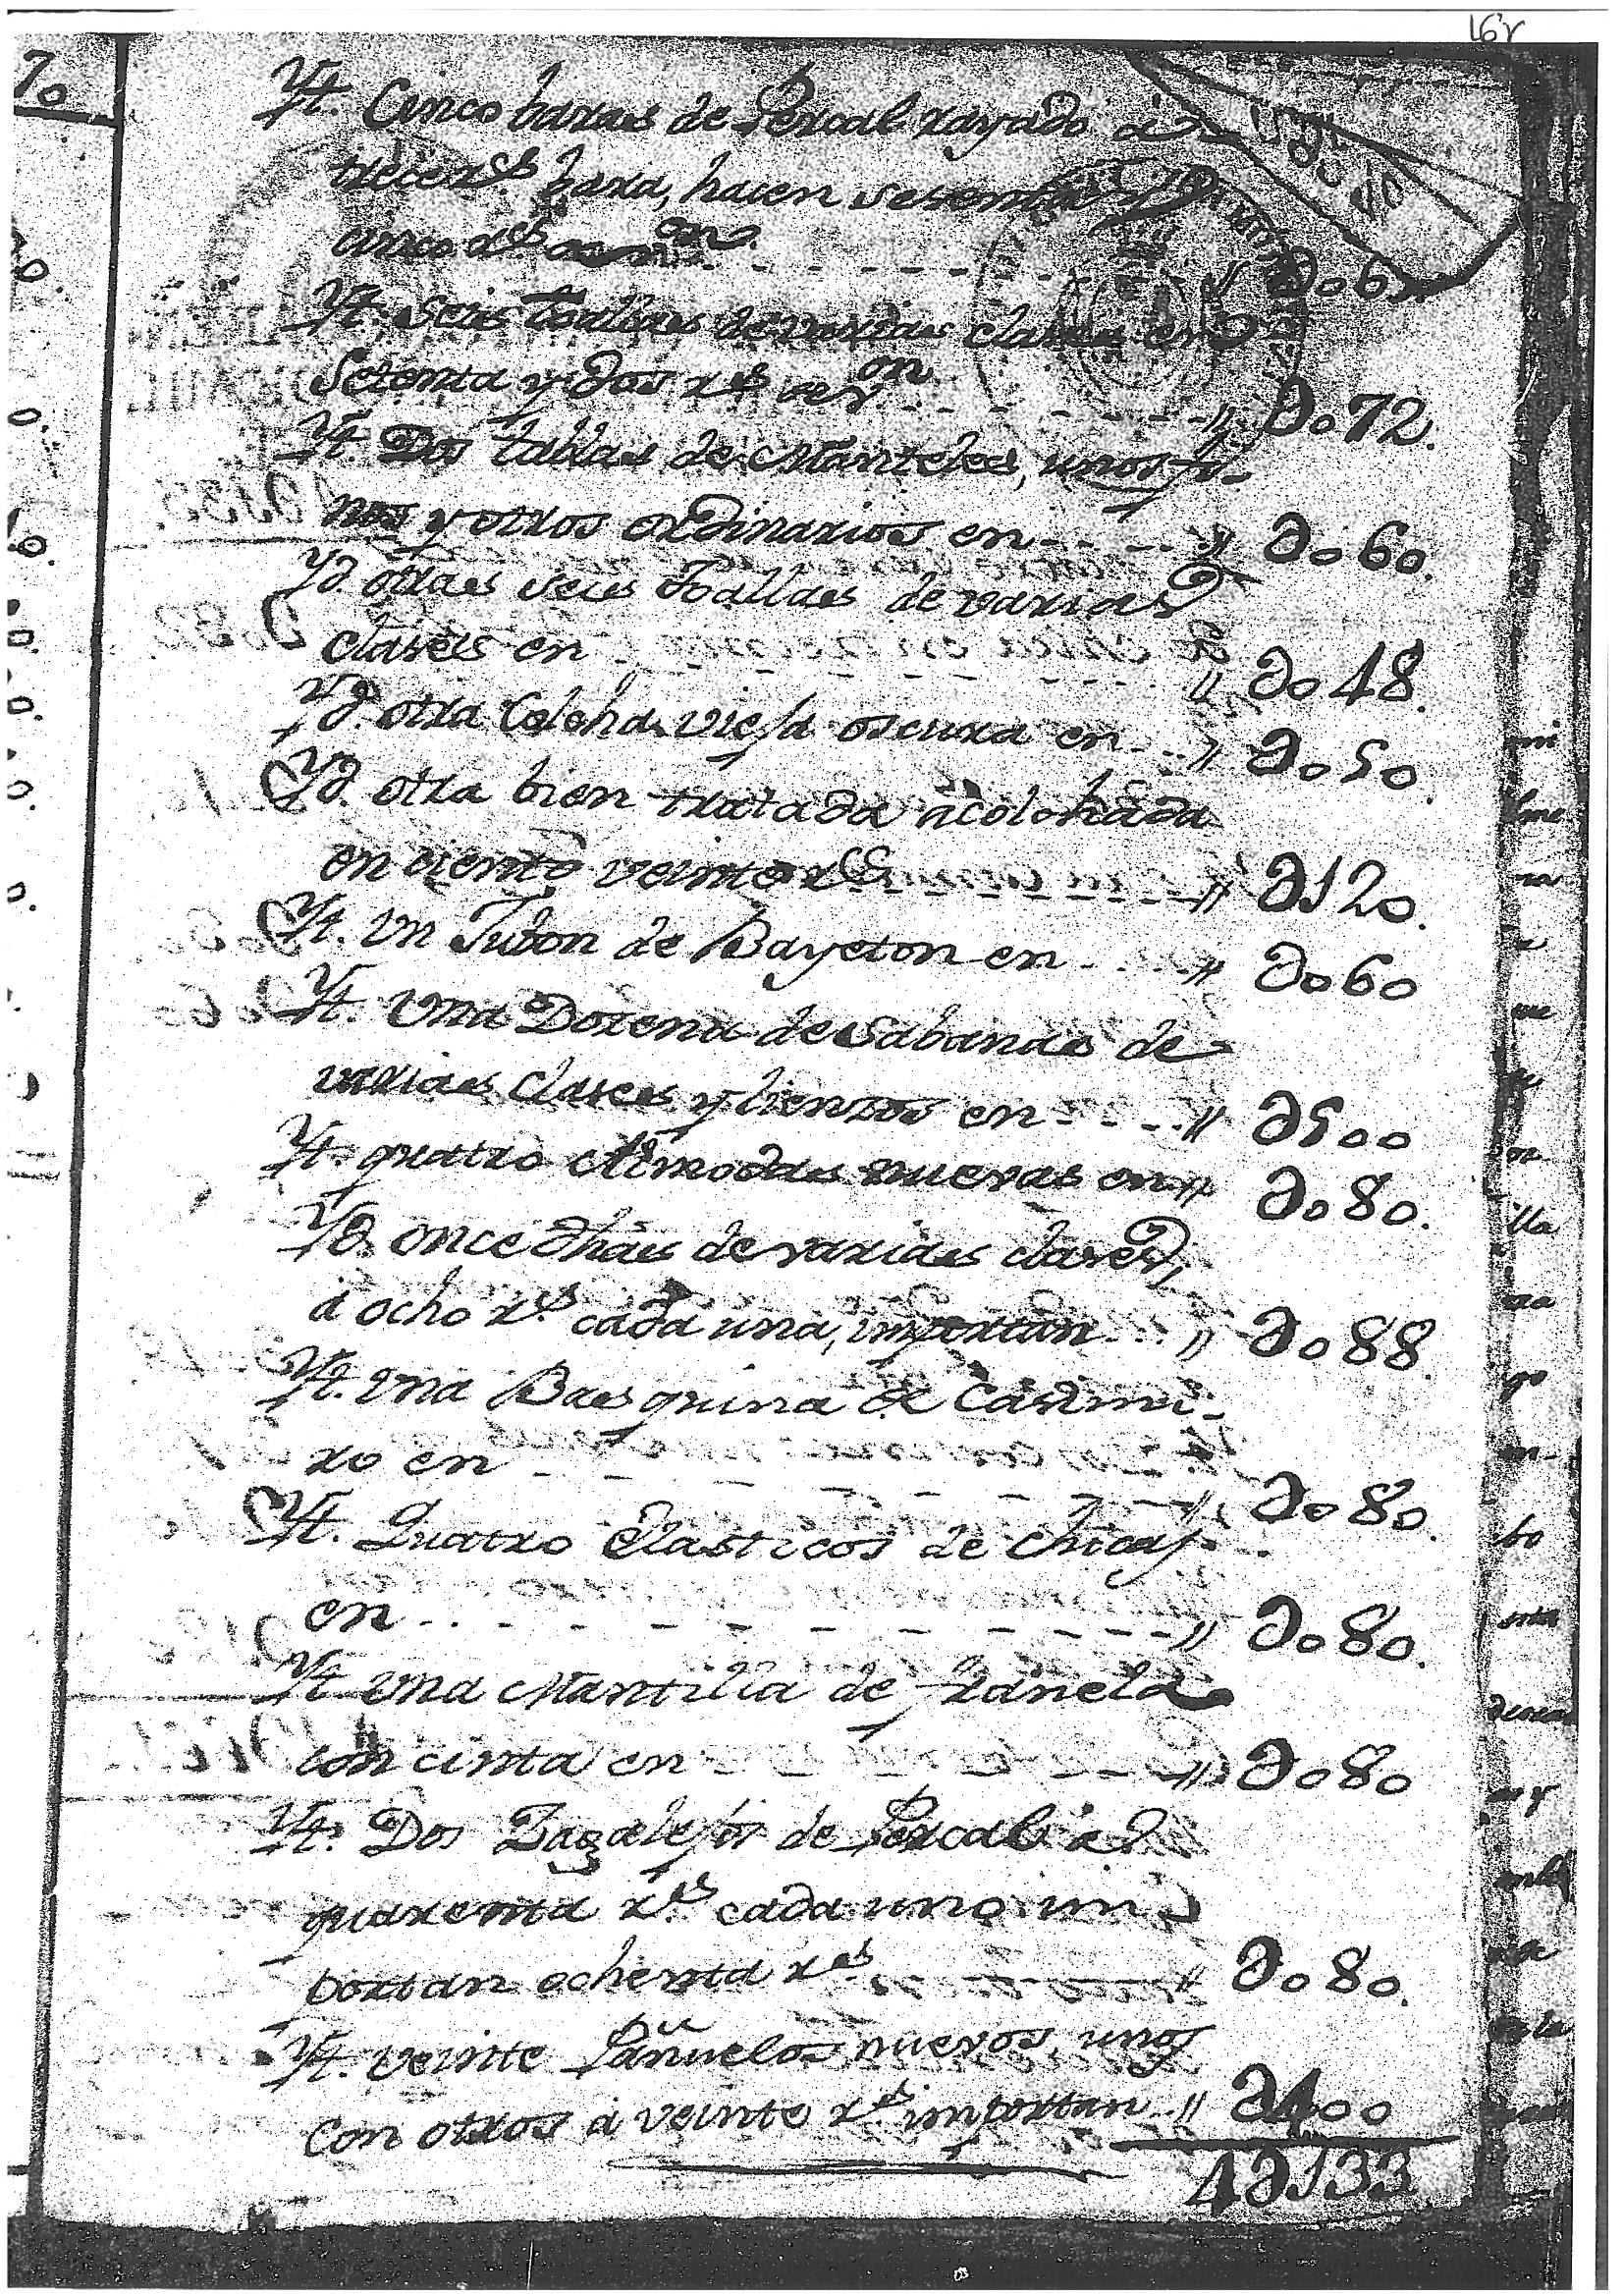 16r
Yt. Cinco baras de Percal rayado á
trece rs. bara, hacen sesenta y
cinco rs. von. - - - - - " D065
Yt. Seis toallas de varias clases en
Setenta y dos rs. de von. - - - - " D072.
Yt. Dos tablas de Manteles, unos fi-
nos y otros ordinarios en - - - - " D060.
Yd. otras seis Toallas de varias
clases en - - - - " D048.
Yd. otra Colcha vieja oscura en - - " D050.
Yd. otra bien tratada acolchada
en ciento veinte rs. - - - - " D120.
Yt. Un Jubon de Bayeton en - - - - " D060
Yt. Una Docena de Sabanas de
varias clases y lienzos en - - - - " D500
Yt. quatro Almoadas nuevas en " D080.
Yd. once dhas de varias clases,
á ocho rs. cada una, importan - - " D088
Yt. Una Basquina de Casimi-
ro en - - - - " D080.
Yt. Quatro Elasticos de chicas
en - - - - " D080.
Yt. Una Mantilla de franela
con cinta en - - - - " D080
Yt. Dos Zagalejos de Percal á
quarenta rs. cada uno im-
portan ochenta rs. - - - - " D080.
Yt. veinte Pañuelos nuevos, unos
con otros á veinte rs. importan - - " D400
4D133